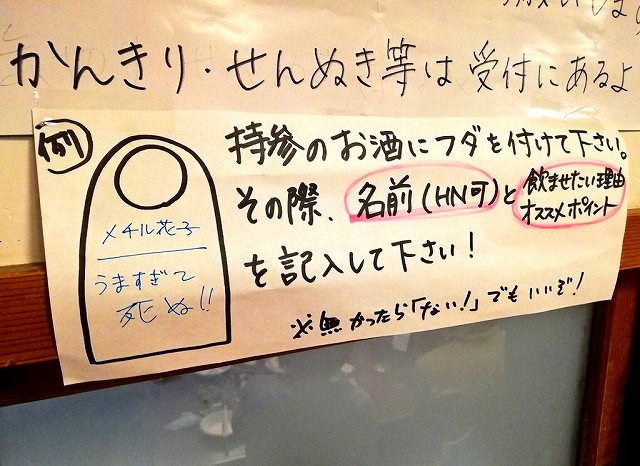 かんきり・せんぬき等は受付にあるよ
例
メチル花子
うますぎて
死ぬ!!
持参のお酒にフダを付けて下さい。
その際、名前(HN可)と飲ませたい理由
オススメポイント
を記入して下さい!
※無かったら「ない!」でもいいぞ!